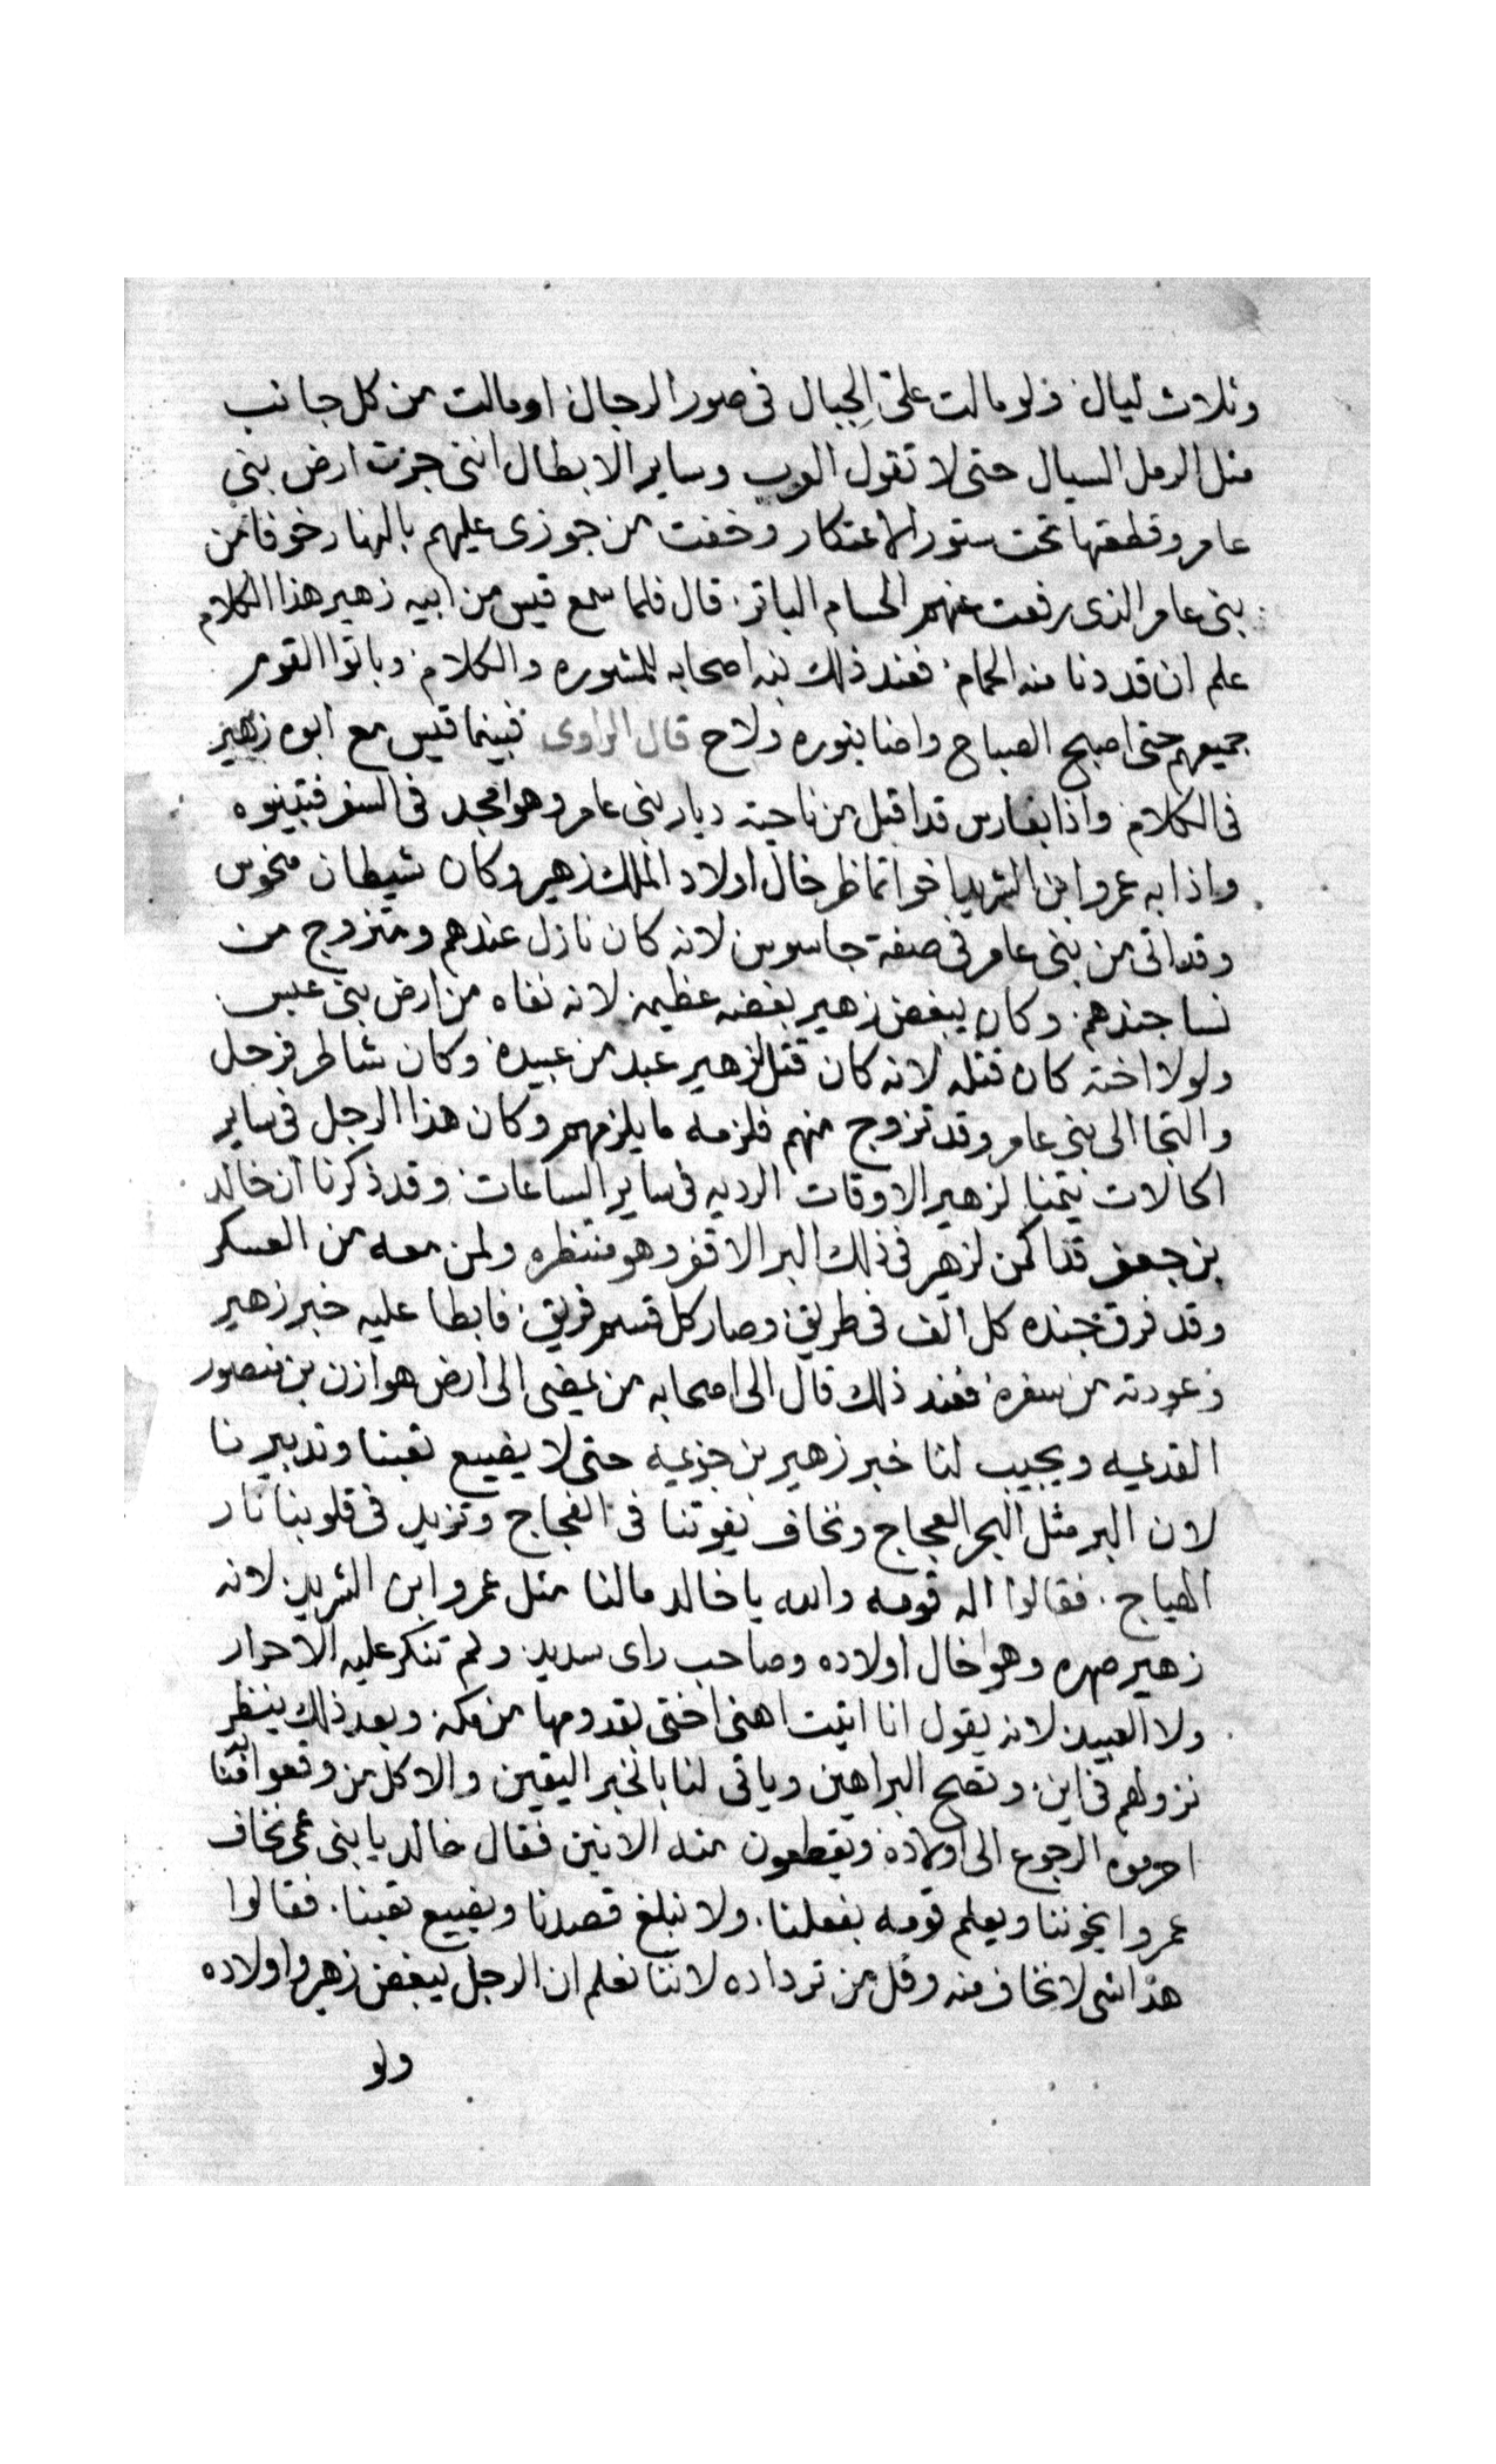 وثلاث ليال ولو مالت علي الجبال في صور الرجال او مالت من كل جانب
مثل الرمل السيال حتى لا تقول العرب وساير الابطال انني جزت ارض بني
عامر وقطعتها تحت ستور الاعتكار وخفت من جوزى عليهم بالنهار خوفا من
بنى عامر الذى رفعت عنهم الحسام الباتر قال فلما سمع قيس من ابيه زهير هذا الكلام
علم ان قد دنا منه الحمام فعند ذلك نبه اصحابه للمشوره والكلام وباتوا القوم
جميعهم حتى اصبح الصباح واضا بنوره ولاح قال الراوى فبينما قيس مع ابوه زهير
في الكلام واذا بفارس قد اقبل من ناحية ديار بنى عامر وهوا مجد في السفر فتبينوه
واذا به عمرو ابن الشريد اخو اتماظر خال اولاد الملك زهير وكان شيطان منحوس
وقد اتى من بنى عامر في صفة جاسوس لانه كان نازل عندهم ومتزوج من
نسا جندهم وكان يبغض زهير بغضه عظيمه لانه نفاه من ارض بني عبس
ولولا اخته كان قتله لانه كان قتل لزهير عبد من عبيده وكان شاطر فرحل
والتجا الى بنى عامر وقد تزوج منهم فلزمه ما يلزمهم وكان هذا الرجل في ساير
الحالات يتمنا لزهير الاوقات الرديه في ساير الساعات وقد ذكرنا ان خالد
بن جعفر قد اكمن لزهير في ذلك البر الاقفر وهو منتظره ولمن معه من العسكر
وقد فرق جنده كل الف في طريق وصار كل قسم فريق فابطا عليه خبر زهير
وعودته من سفره فعند ذلك قال الى اصحابه من يمضى الى ارض هوازن بن منصور
القديمه ويجيب لنا خبر زهير بن جزيمه حتى لا يضيع تعبنا وتدبيرنا
لان البر مثل البحر العجاج ونخاف يفوتنا في الفجاج وتزيد في قلوبنا نار
الهياج فقالوا اله قومه والله يا خالد مالنا مثل عمرو ابن الشريد لانه
زهير صهره وهوا خال اولاده وصاحب راى سديد ولم تنكر عليه الاحرار
ولا العبيد لانه يقول انا اتيت اهنى اختى بقدومها من مكه وبعد ذلك ينظر
نزولهم في اين وتصح البراهين وياتى لنا بالخبر اليقين والا كل من وقعوا فينا
احرموه الرجوع الى اولاده ويقطعون منه الانين فقال خالد يا بنى عمى نخاف
عمروا يخوننا ويعلم قومه بفعلنا ولا نبلغ قصدنا ويضيع تعبنا فقالوا
هذا شى لا نخاف منه وقل من ترداده لاننا نعلم ان الرجل يبغض زهير واولاده
ولو